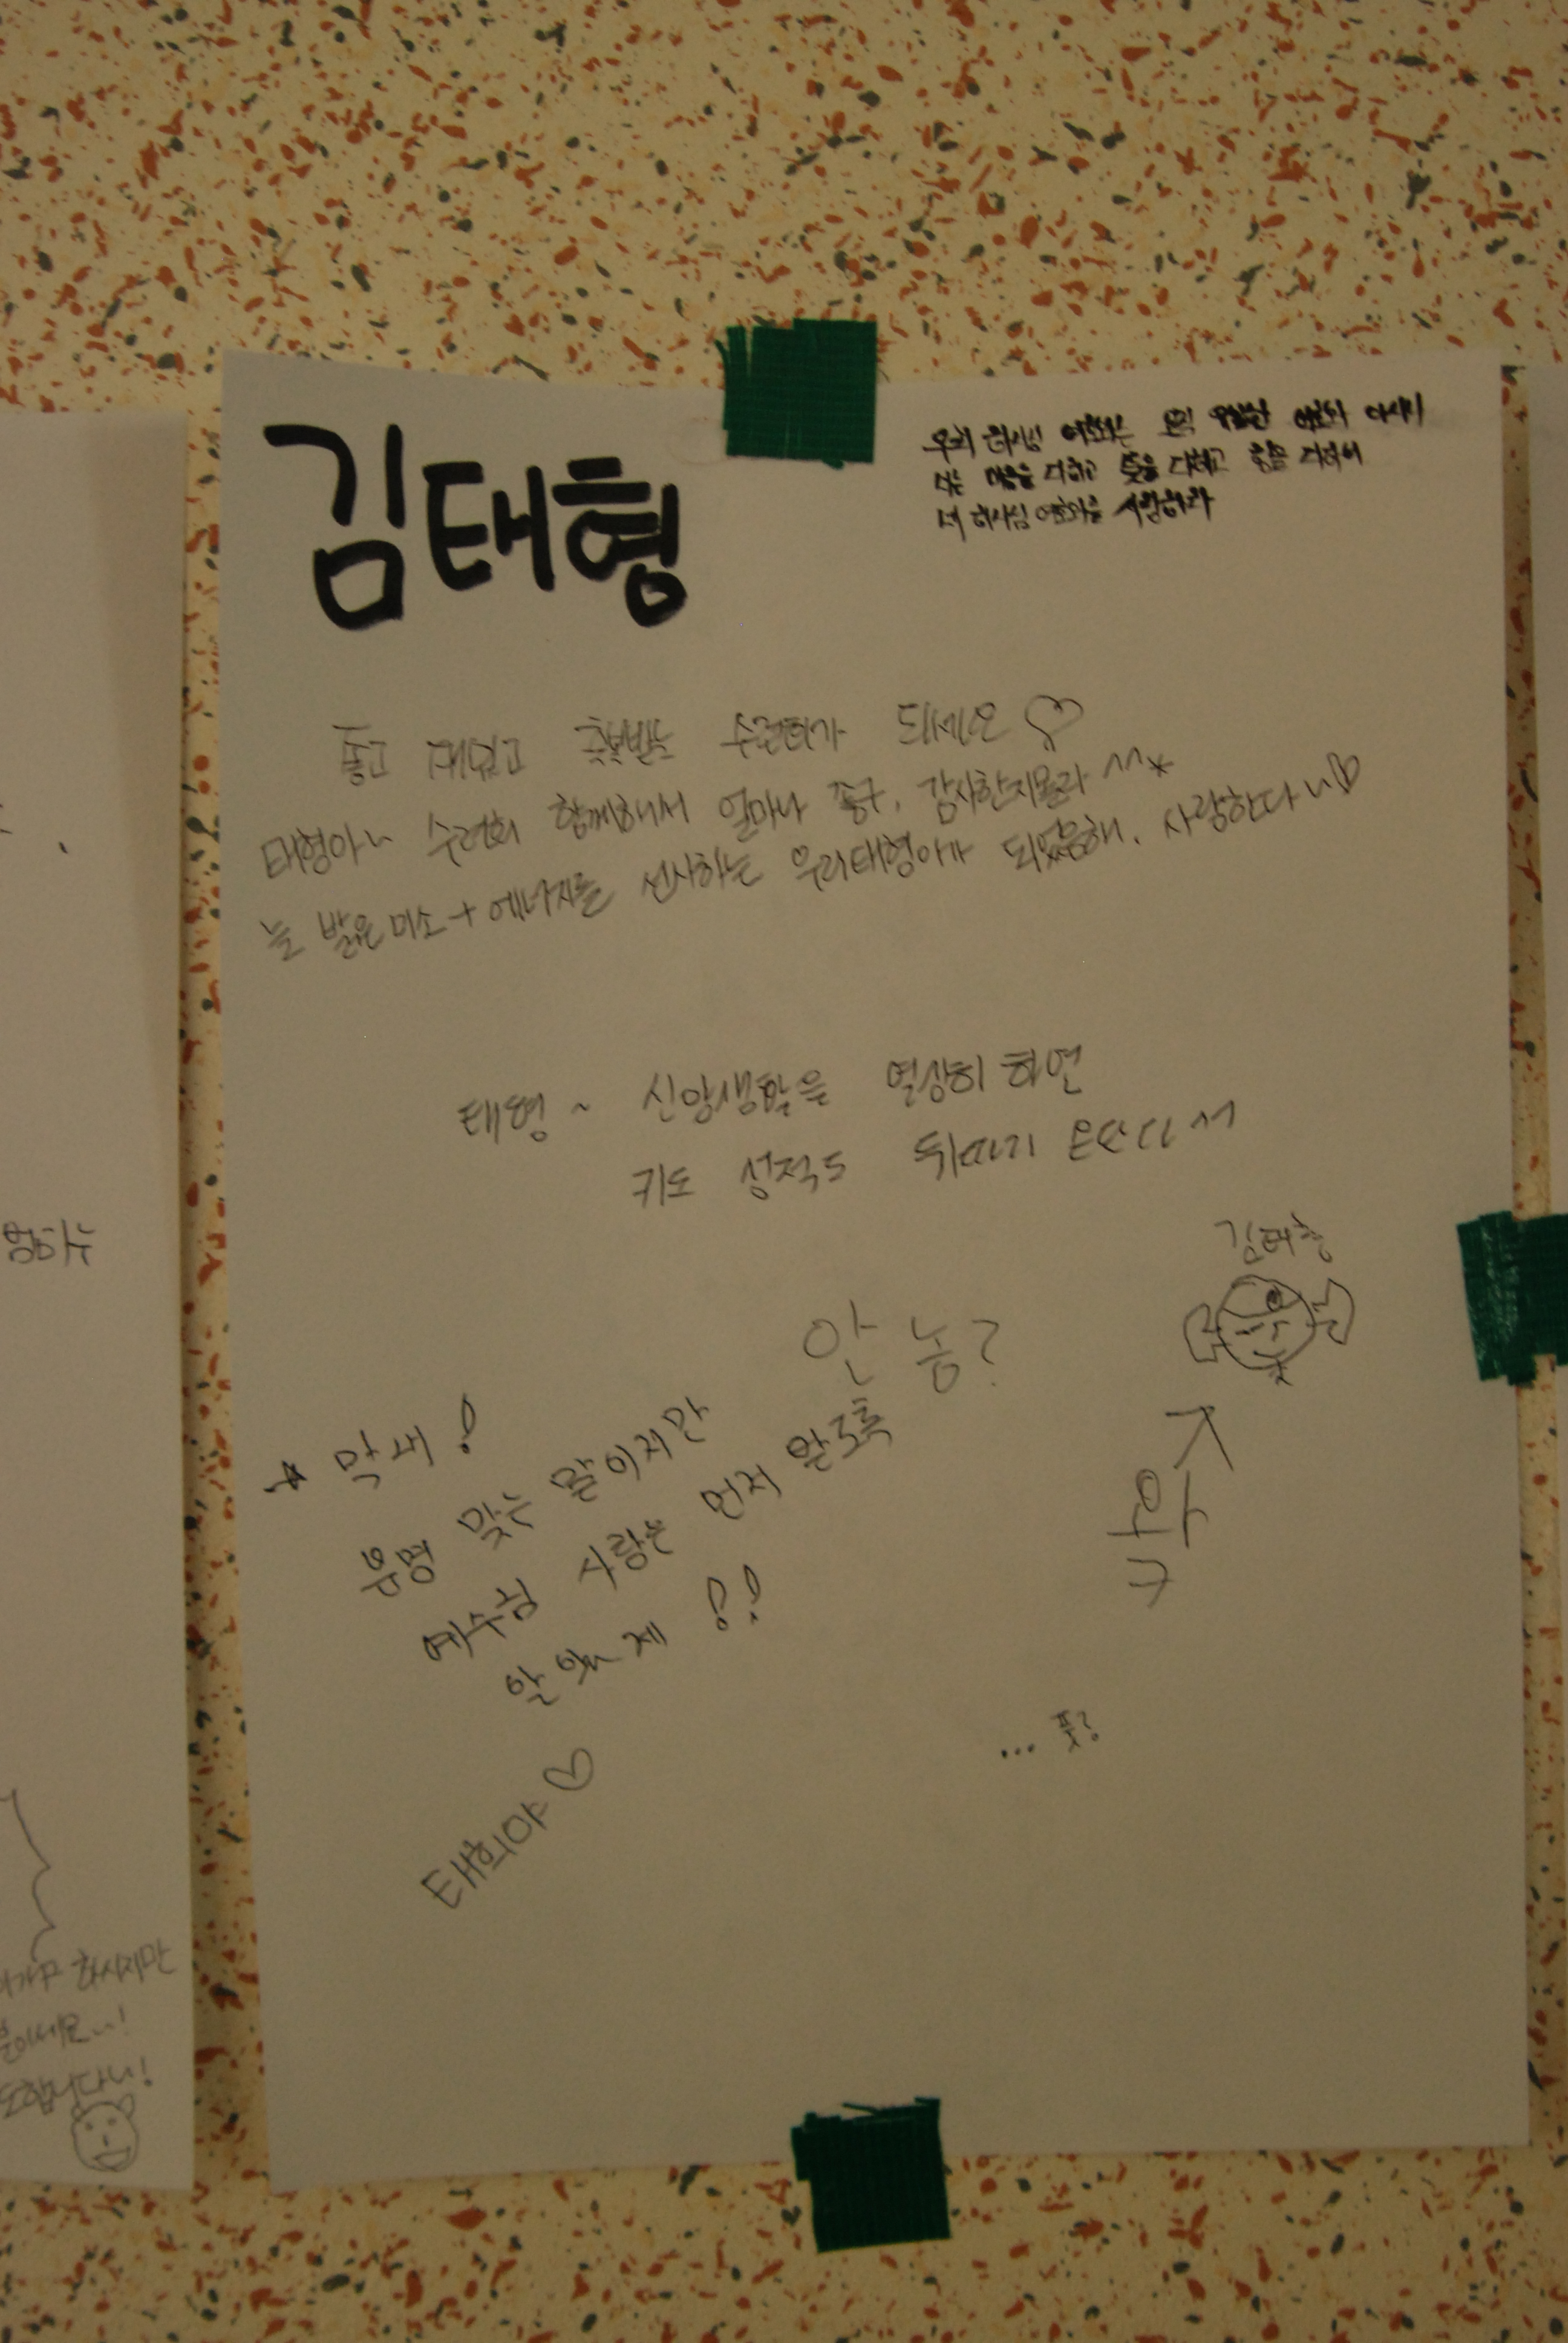 김태형
우리 하나님 여호와는 오직 유일한 여호와 이시니
너는 마음을 다하고 뜻을 다하고 힘을 다하여
네 하나님 여호와를 사랑하라
좋고 재밌고 축복받는 수련회가 되세요♡
태형아~ 수련회 함께해서 얼마나 좋구, 감사한지몰라 ^^*
늘 밝은미소+에너지를 선사하는 우리태형이가 되었음해. 사랑한다~♡
태형~ 신앙생활을 열심히 하면
키도 성적도 뒤따라 온단다 ^^
김태형
안 농?
☆ 막내!
분명 맞는 말이지만
예수님 사랑은 먼저 알도록
알았제 !!
와
ㅋ
... 풋?
태희야♡
하시지만